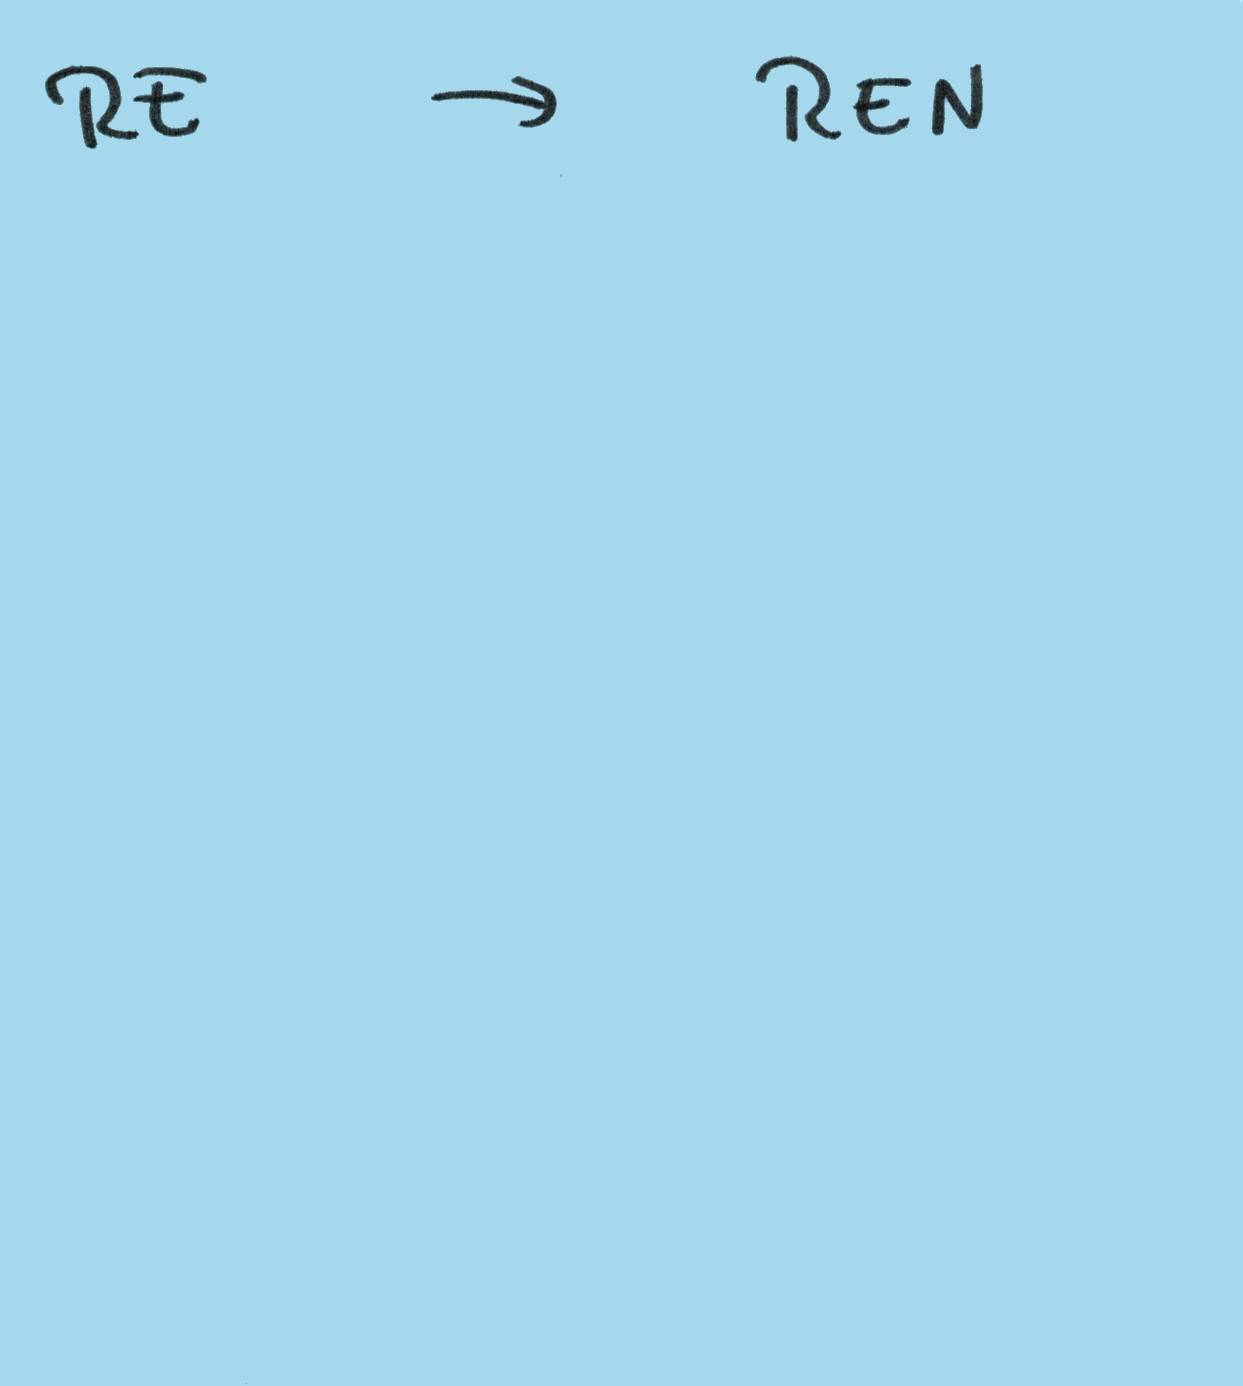 RE → REN